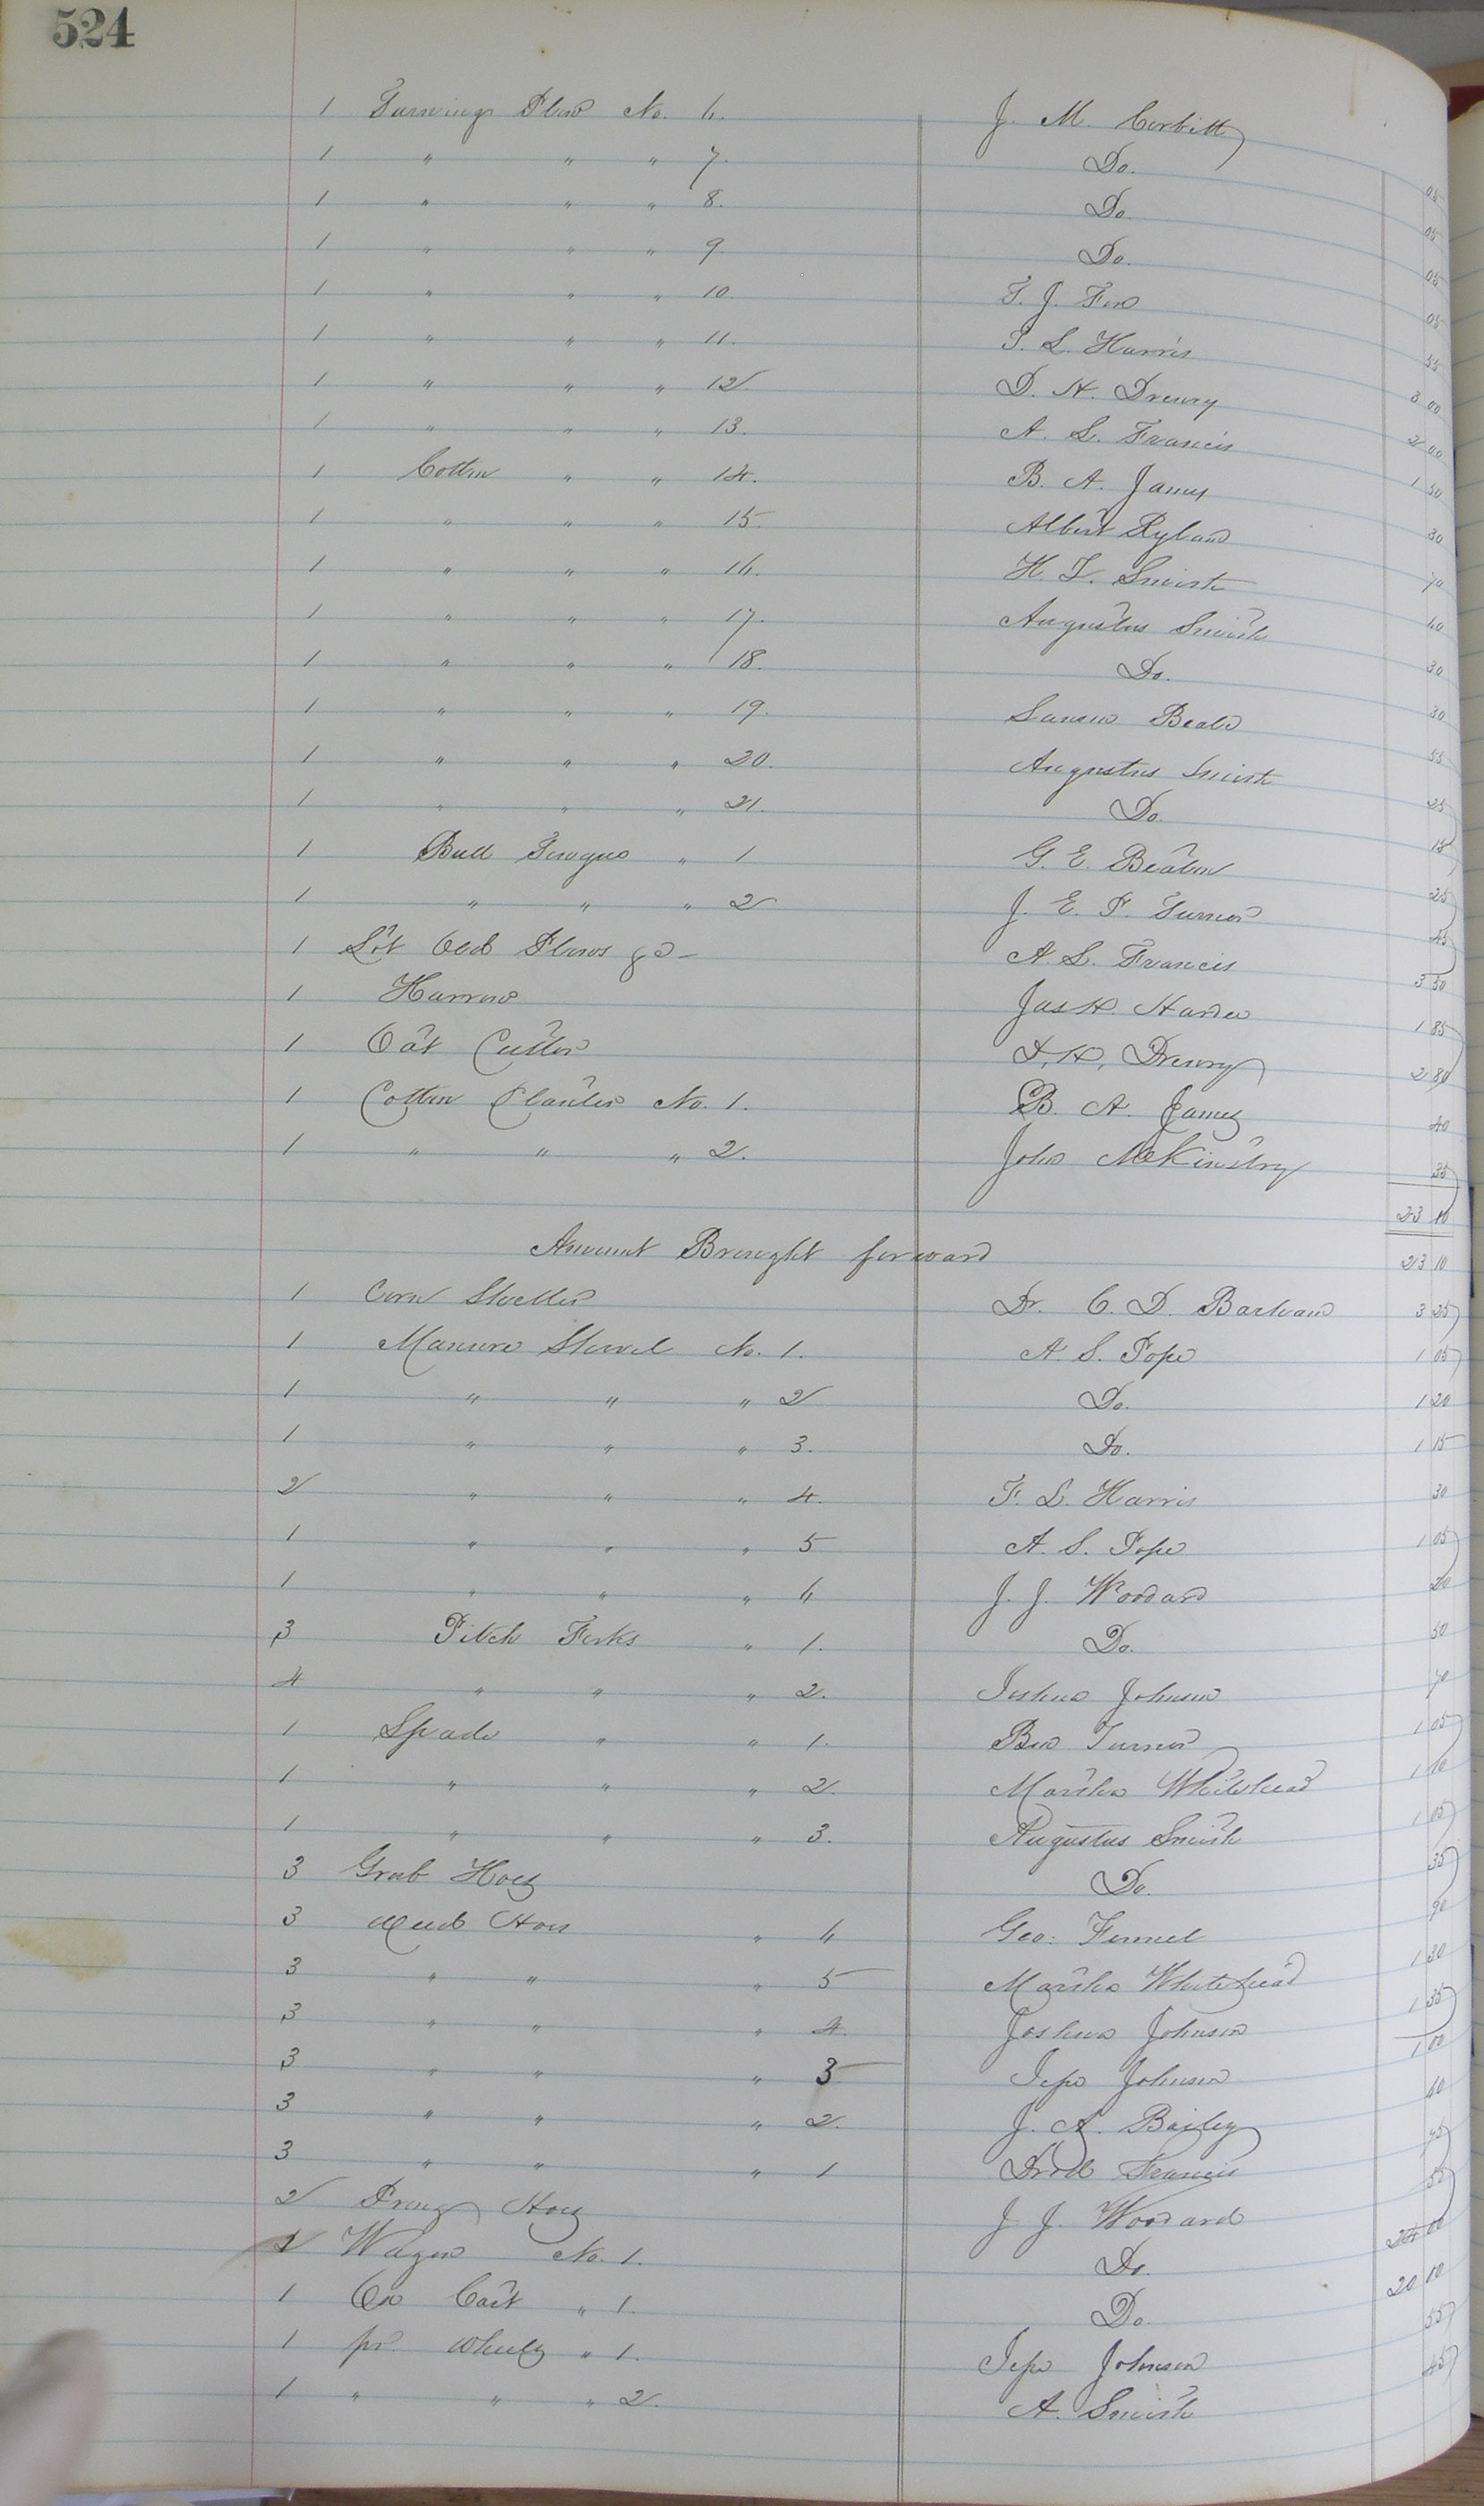 524
1 Turning Plow No. 6. J. M. Corbitt 05
1 " " " 7. Do. 05
1 " " " 8. Do 05
1 " " " 9 Do. 05
1 " " " 10. T. J. Fox 55
1 " " " 11. T. L. Harris 3 00
1 " " " 12. D. H. Drewry 2 00
1 " " " 13. A. L. Francis 1 50
1 Cotton " " 14. B. A. James 30
1 " " " 15. Albert Ryland 70
1 " " " 16. H. T. Smith 60
1 " " " 17. Augustus Smith 30
1 " " " 18. Do. 30
1 " " " 19. Beale 55
1 " " " 20. Augustus Smith 25
1 " " " 21. Do. 15
1 Bull Tongue " 1 G. E. Beaton 25
1 " " " 2 J. E. F. Turner 45
1 Lot Old Plows &c - A. L. Francis 3 50
1 Harrow Jas H. Hardee 1 85
1 Oat Cutter D. H. Drewry 2 80
1 Cotton Planter No. 1. B. A. James 40
1 " " " 2. John McKinstry 35
23 10
Amount Brought forward 23 10
1 Corn Sheller Dr. C. D. Barham 3 25
1 Manure Shovel No. 1. A. S. Pope 1 05
1 " " " 2 Do. 1 20
1 " " " 3. Do. 1 15
2 " " " 4. T. L. Harris 30
1 " " " 5 A. S. Pope 1 05
1 " " " 6 J. J. Woodard 20
3 Pitch Forks " 1. Do. 50
4 " " " 2. Joshua Johnson 70
1 Spade " " 1. Ben Turner 1 05
1 " " " 2. Martha Whitehead 1 10
1 " " " 3. Augustus Smith 1 05
3 Grub Hoes Do. 35
3 Weed Hoes " 6 Geo. Fennel 90
3 " " " 5 Martha Whitehead 1 30
3 " " " 4. Joshua Johnson 1 35
3 " " " 3 Johnson 1 00
3 " " " 2. J. A. Bailey 60
3 " " " 1 Dred Francis 45
2 Prong Hoes J. J. Woodard 55
1 Wagon No. 1. Do. 24 00
1 Ox Cart " 1. Do. 20 10
1 pr wheels " 1. Johnson 55
1 " " " 2. A. Smith 45